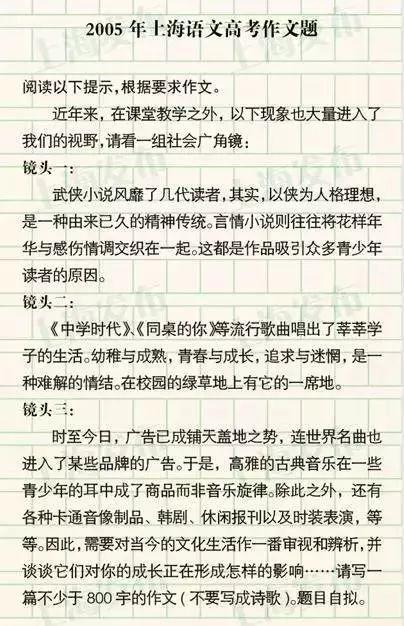 2005年上海语文高考作文题
阅读以下提示，根据要求作文。
近年来，在课堂教学之外，以下现象也大量进入了
我们的视野，请看一组社会广角镜；
镜头一：
武侠小说风靡了几代读者，其实，以侠为人格理想，
是一种由来已久的精神传统。言情小说则往往将花样年
华与感伤情调交织在一起。这都是作品吸引众多青少年
读者的原因。
镜头二：
《中学时代》、《同桌的你》等流行歌曲唱出了莘莘学
子的生活。幼稚与成熟，青春与成长，追求与迷惘，是一
种难解的情结。在校园的绿草地上有它的一席地。
镜头三：
时至今日，广告已成铺天盖地之势，连世界名曲也
进入了某些品牌的广告。于是，高雅的古典音乐在一些
青少年的耳中成了商品而非音乐旋律。除此之外，还有
各种卡通音像制品、韩剧、休闲报刊以及时装表演，等
等。因此，需要对当今的文化生活作一番审视和辨析，并
谈谈它们对你的成长正在形成怎样的影响……请写一
篇不少于800字的作文（不要写成诗歌）。题目自拟。
上海发布
上海发布
上海发布
上海发布